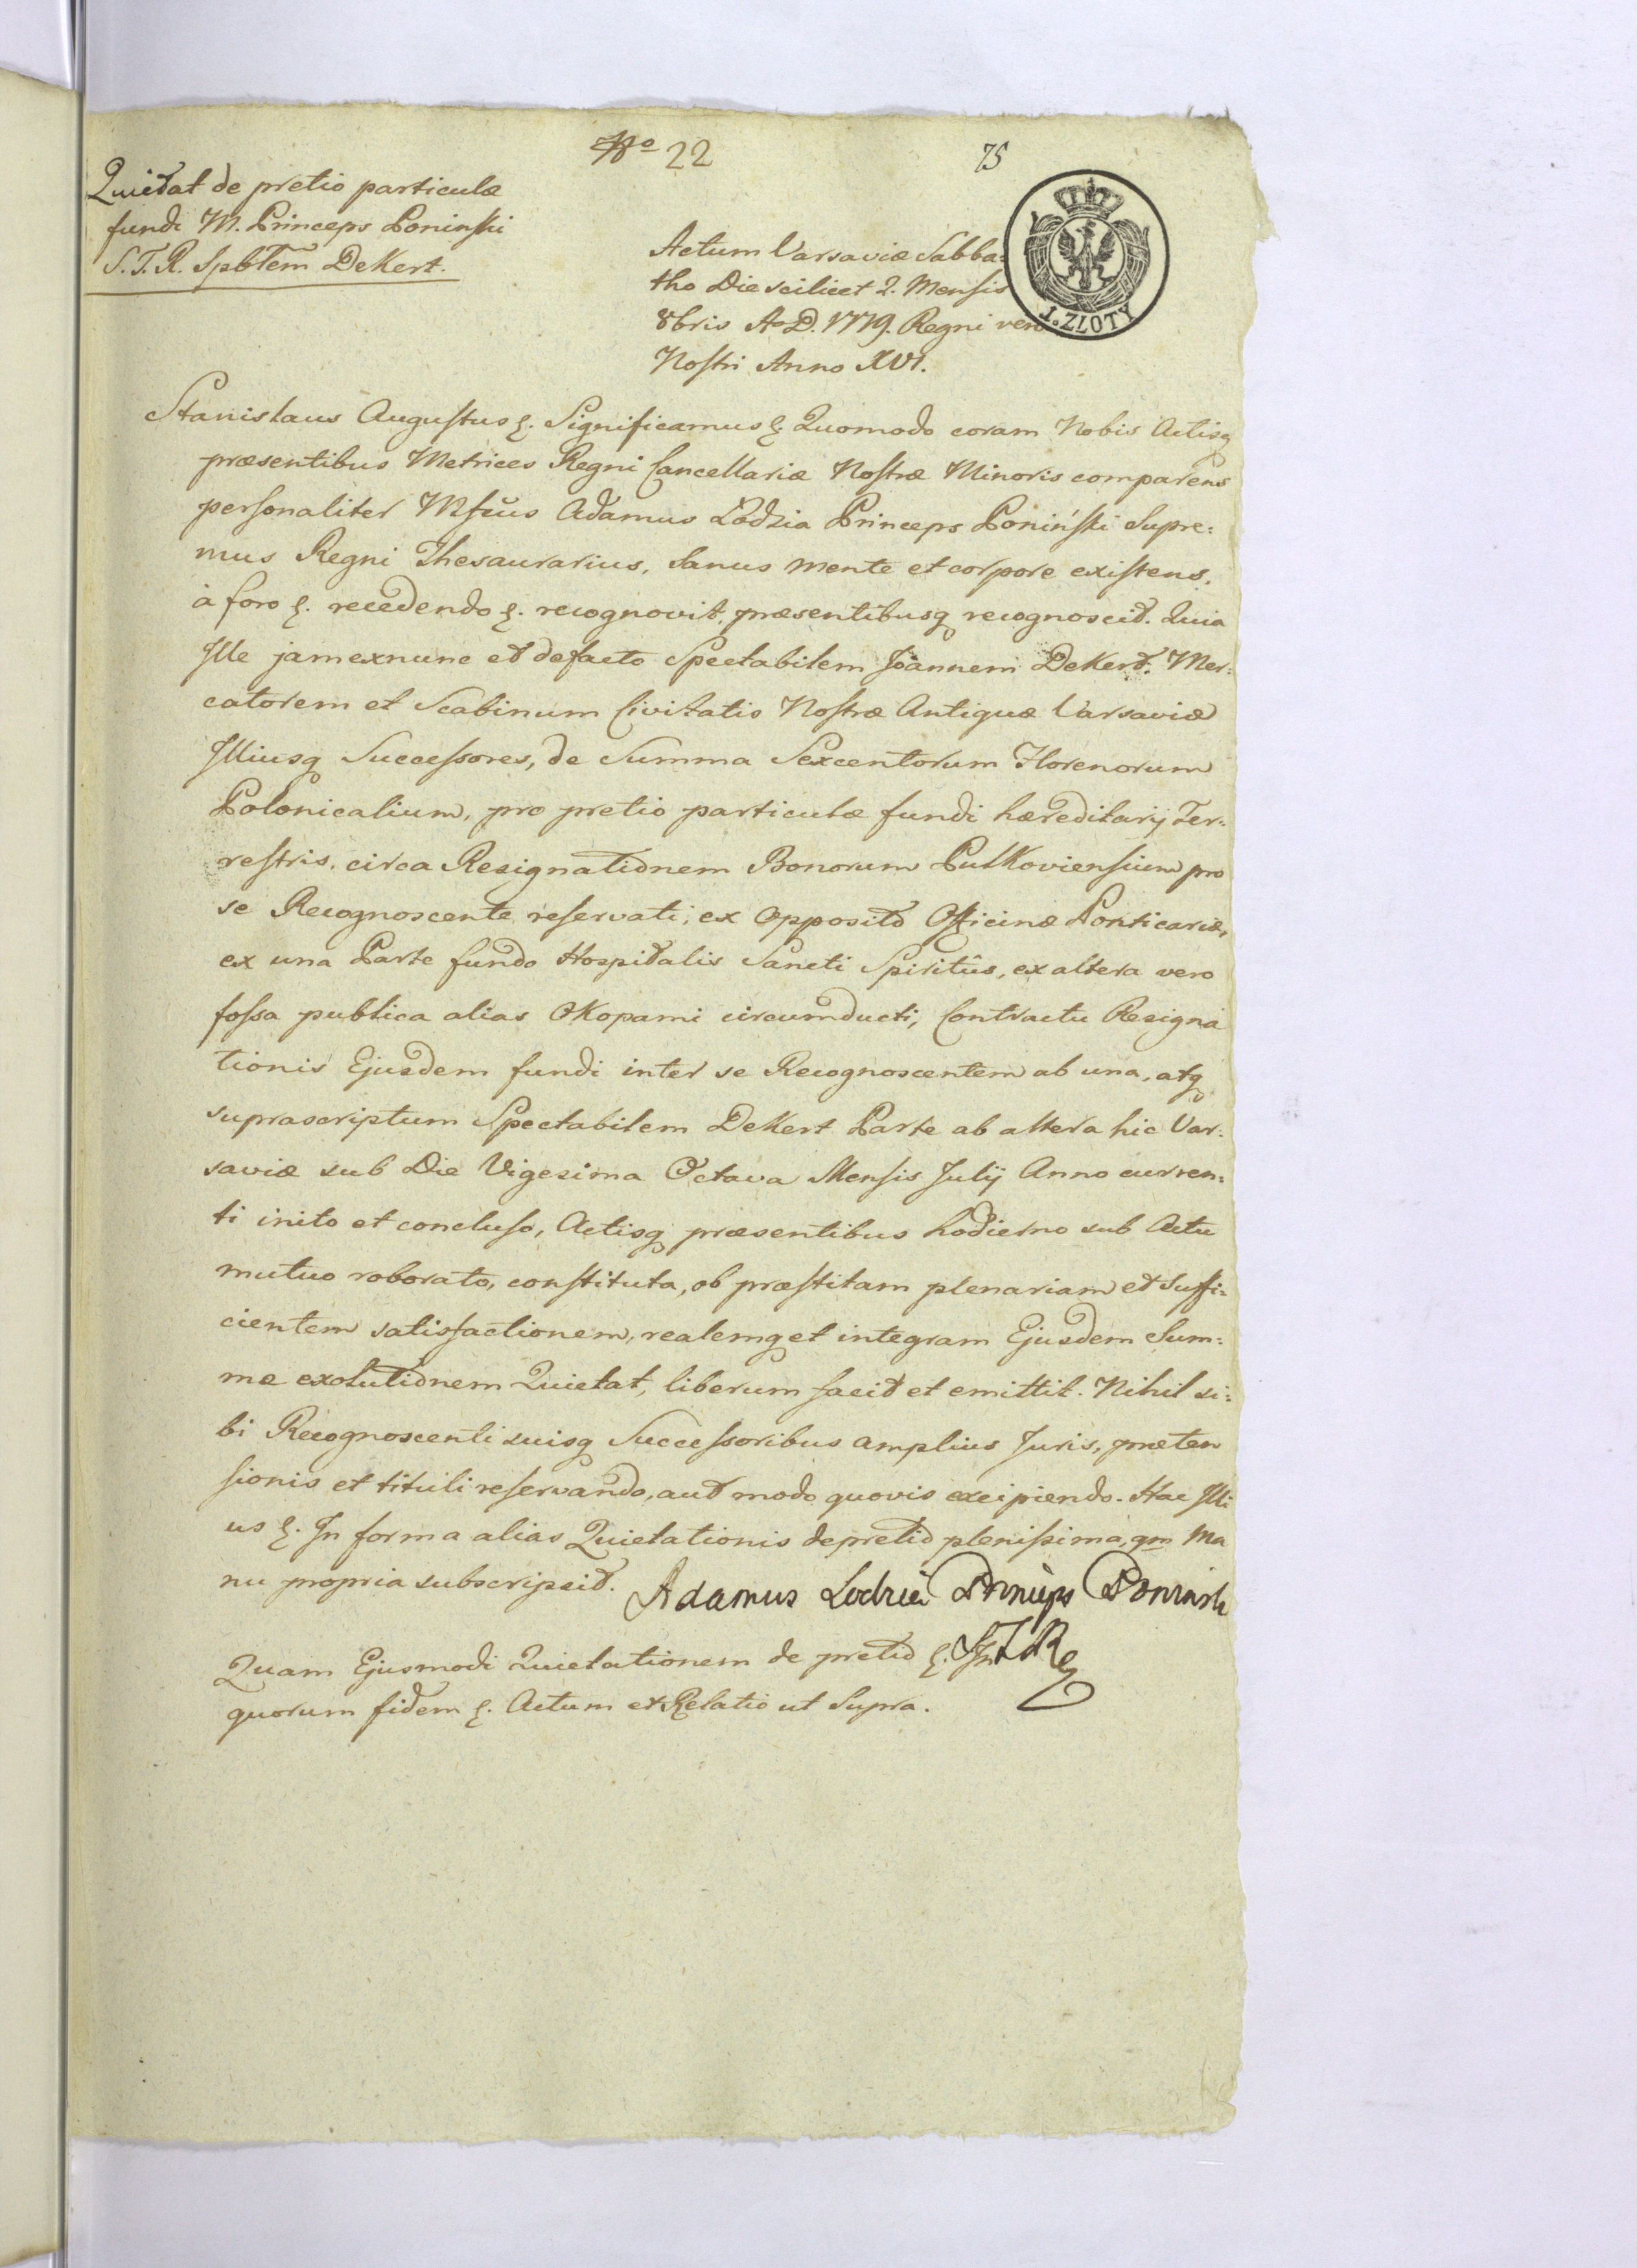 No 22
75
Quietat de pretio particulæ
fundi M. Princeps Poninski
S. T. R. Spbtem Dekert.
Actum Varsaviæ Sabba=
tho Die scilicet 2. Mensis
8bris A. D. 1779. Regni vero
Nostri Anno XVI.
1. ZŁOTY
Stanislaus Augustus &. Significamus & Quomodo coram Nobis Actisq
præsentibus Metrices Regni Cancellariæ Nostræ Minoris comparens
personaliter Mfcus Adamus Łodzia Princeps Poniński Supre=
mus Regni Thesaurarius, sanus mente et corpore existens,
à foro &. recedendo &. recognovit, præsentibusq recognoscit. Quia
Ille jam exnunc et defacto Spectabilem Joannem Dekert. Mer=
catorem et Scabinum Civitatis Nostræ Antiquæ Varsaviæ
Illiusq Successores, de Summa Sexcentorum Florenorum
Polonicalium, pro pretio particulæ fundi hæreditarij Ter=
restris, circa Resignationem Bonorum Pulkoviensium pro
se Recognoscente reservati, ex opposito Officinæ Ponticariæ,
ex una Parte fundo Hospitalis Sancti Spiritûs, ex altera vero
fossa publica alias Okopami circumducti, Contractu Resigna
tionis Ejusdem fundi inter se Recognoscentem ab una, atq
suprascriptum Spectabilem Dekert Parte ab altera hic Var=
saviæ sub Die Vigesima Octava Mensis Julij Anno curren=
ti inito et concluso, Actisq præsentibus hodierno sub Actu
mutuo roborato, constituta, ob præstitam plenariam et suffi=
cientem satisfactionem, realemq et integram Ejusdem Sum=
mæ exolutionem Quietat, liberum facit et emittit. Nihil si=
bi Recognoscenti suisq Successoribus amplius Juris, præten
sionis et tituli reservando, aut modo quovis excipiendo. Hac Illi
us &. In forma alias Quietationis de pretio plenissima, qm Ma
nu propria subscripsit. Adamus Lodzia Princeps Poninski
STR
Quam Ejusmodi Quietationem de pretio &. In
quorum fidem &. Actum et Relatio ut Supra.